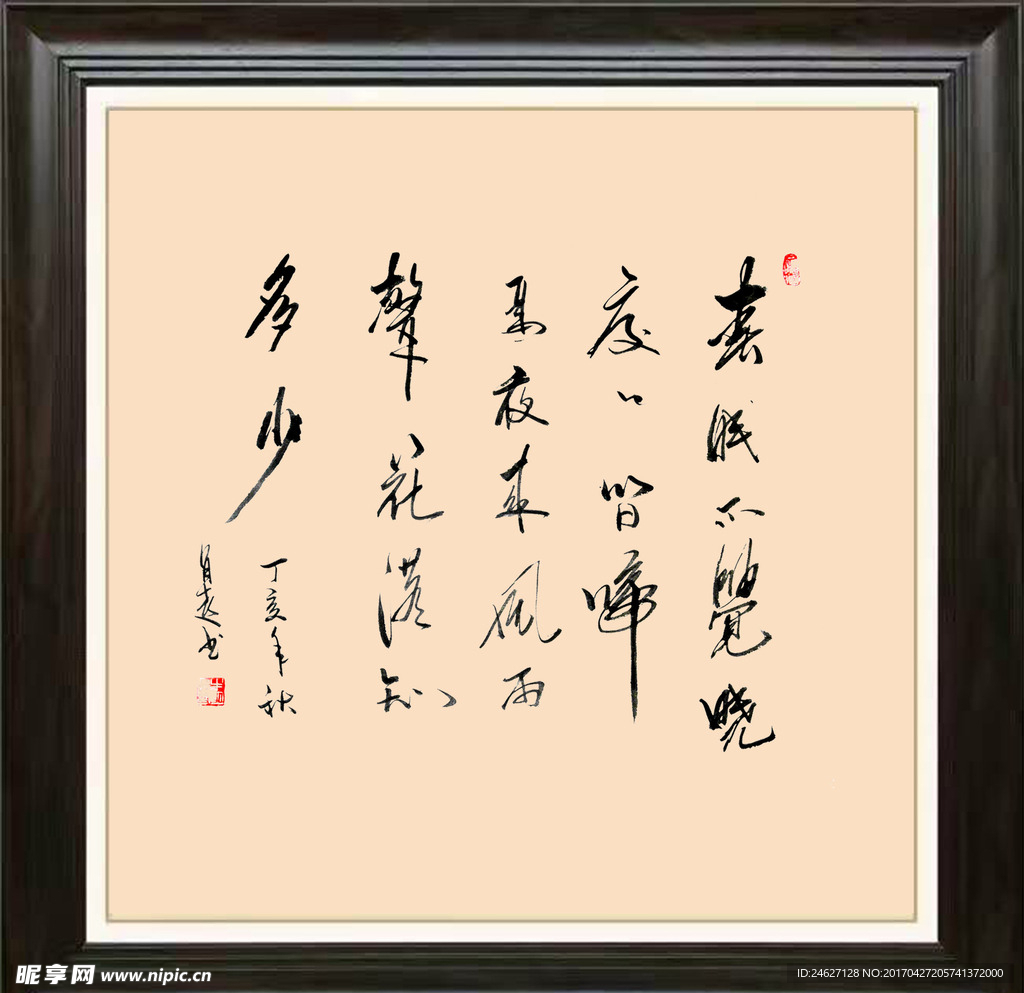 春眠不覺晓
處々皆啼
鳥夜来風雨
聲花落知
多少
丁亥年秋
书
昵享网 www.nipic.cn
ID:24627128 NO:20170427205741372000